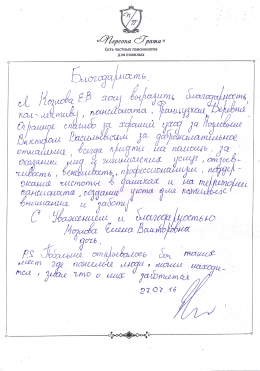 «Персона Грата»
Сеть частных пансионатов
для пожилых
Благодарность.
Я Козлова ЕВ хочу выразить благодарность
коллективу, пансионата, Французская Деревня.
Огромное спасибо за хороший уход за Поповым
Виктором Васильевичем за доброжелательное
отношение, всегда придти на помощь, за
оказание мед и услуг, отзыв-
чивость, вежливость, профессионализм, поддер-
жание чистоты в и на территории
пансионата, создание уюта для пожилых
внимание и заботу.
С Уважением и благодарностью
Козлова Елена Викторовна
дочь.
P.S. Побольше открывалось бы таких
мест где пожилые люди, могли находи-
тся, зная что о них заботятся
27.07.16